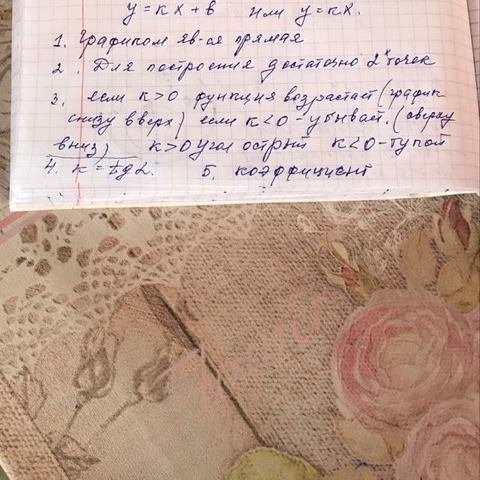 y = kx + в или y = kx.
1. Графиком яв-ся прямая
2. Для построения достаточно 2х точек
3. если k>0 функция возрастает (график
снизу вверх) если k<0 - убывает. (сверху
вниз) k>0 угол острый k<0 - тупой
4. k = tg α. 5. коэффициент